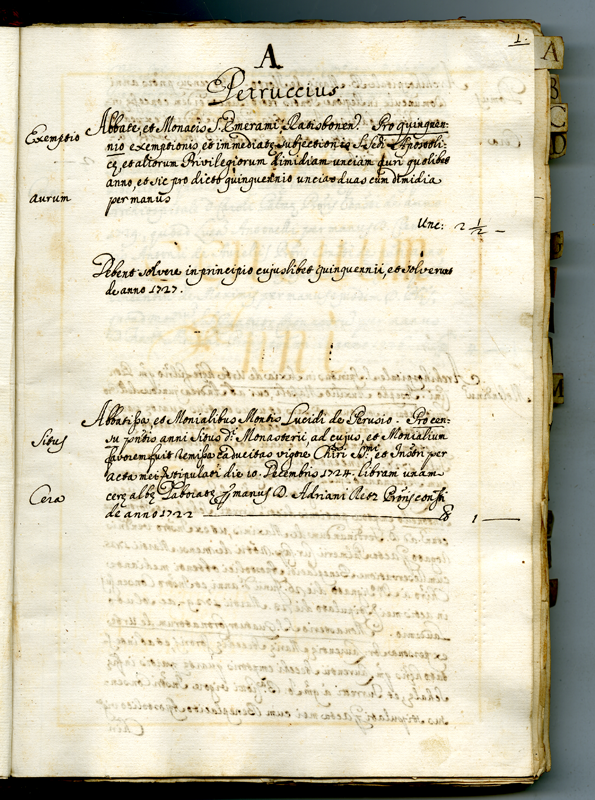 1.
A.
Petruccius
Exemptio
Abbate, et Monacis S. Emerami Ratisbonen. Pro quinquen-
nio exemptionis et immediatę subjectionis S. Sedi Apostoli-
cę, et aliorum Privilegiorum dimidiam unciam auri quolibet
anno, et sic pro dicto quinquennio uncias duas cum dimidia
aurum
per manus
Unc: 2 1/2 –
Debent solvere in principio cujuslibet quinquennii, et solverunt
de anno 1727.
Abbatissa, et Monialibus Montis Lucidi de Perusio. Pro cen-
Situs
su pntis anni Situs d. Monasterii, ad cujus, et Monialium
favorem fuit remissa caducitas vigore Chiri SS.mi et Instri per
acta mei stipulati die 10. Decembris 1724. libram unam
Cera
cerę albę laboratę manus D. Adriani
de anno 1722 1 —
A
B
C
D
G
I
M